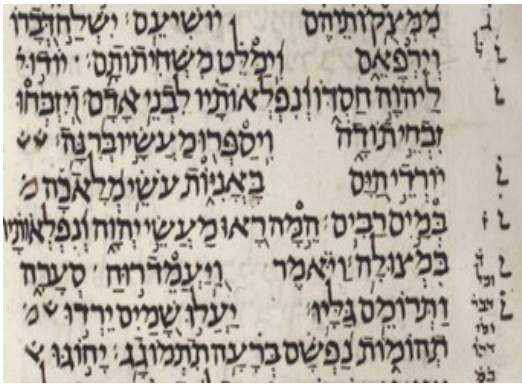 מִמְּצֻקוֹתֵיהֶם יוֹשִׁיעֵם׃ יִשְׁלַח דְּבָרוֹ
וְיִרְפָּאֵם וִימַלֵּט מִשְּׁחִיתוֹתָם׃ יוֹדוּ
לַיהוָה חַסְדּוֹ וְנִפְלְאוֹתָיו לִבְנֵי אָדָם׃ וְיִזְבְּחוּ
זִבְחֵי תוֹדָה וִיסַפְּרוּ מַעֲשָׂיו בְּרִנָּה׃
יוֹרְדֵי הַיָּם בָּאֳנִיּוֹת עֹשֵׂי מְלָאכָה
בְּמַיִם רַבִּים׃ הֵמָּה רָאוּ מַעֲשֵׂי יְהוָה וְנִפְלְאוֹתָיו
בִּמְצוּלָה׃ וַיֹּאמֶר וַיַּעֲמֵד רוּחַ סְעָרָה
וַתְּרוֹמֵם גַּלָּיו׃ יַעֲלוּ שָׁמַיִם יֵרְדוּ
תְהוֹמוֹת נַפְשָׁם בְּרָעָה תִתְמוֹגָג׃ יָחוֹגּוּ